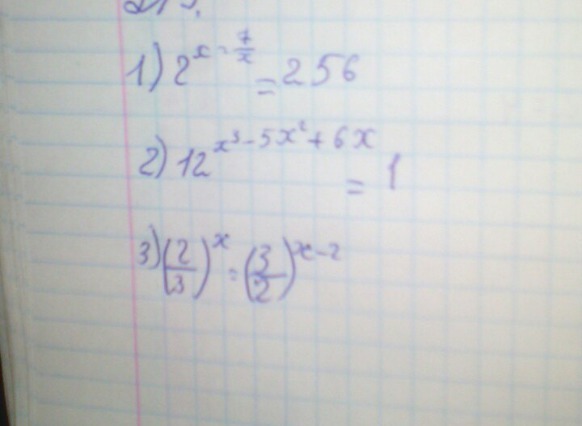 1) 2^{x - 7/x} = 256
2) 12^{x³-5x²+6x} = 1
3) (2/3)^x = (3/2)^{x-2}